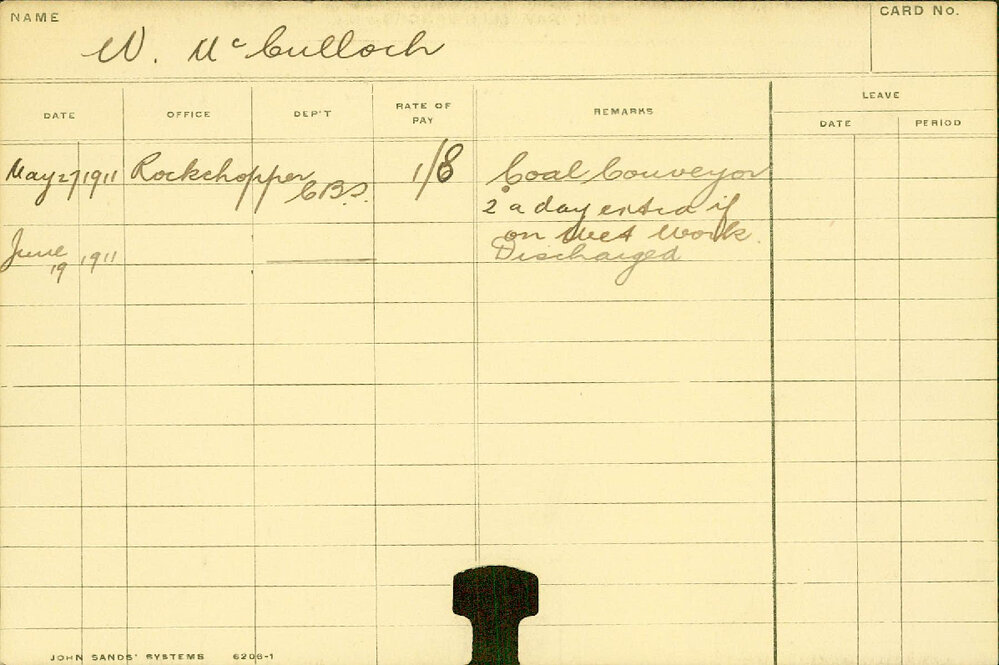 NAME
W. McCulloch
CARD No.
DATE OFFICE DEP'T RATE OF PAY REMARKS LEAVE
DATE PERIOD
May 27 1911 Rockchopper C.B.S. 1/8 Coal Conveyor
2° a day extra if
on wet work.
June 19 1911 Discharged
JOHN SANDS' SYSTEMS 6206-1